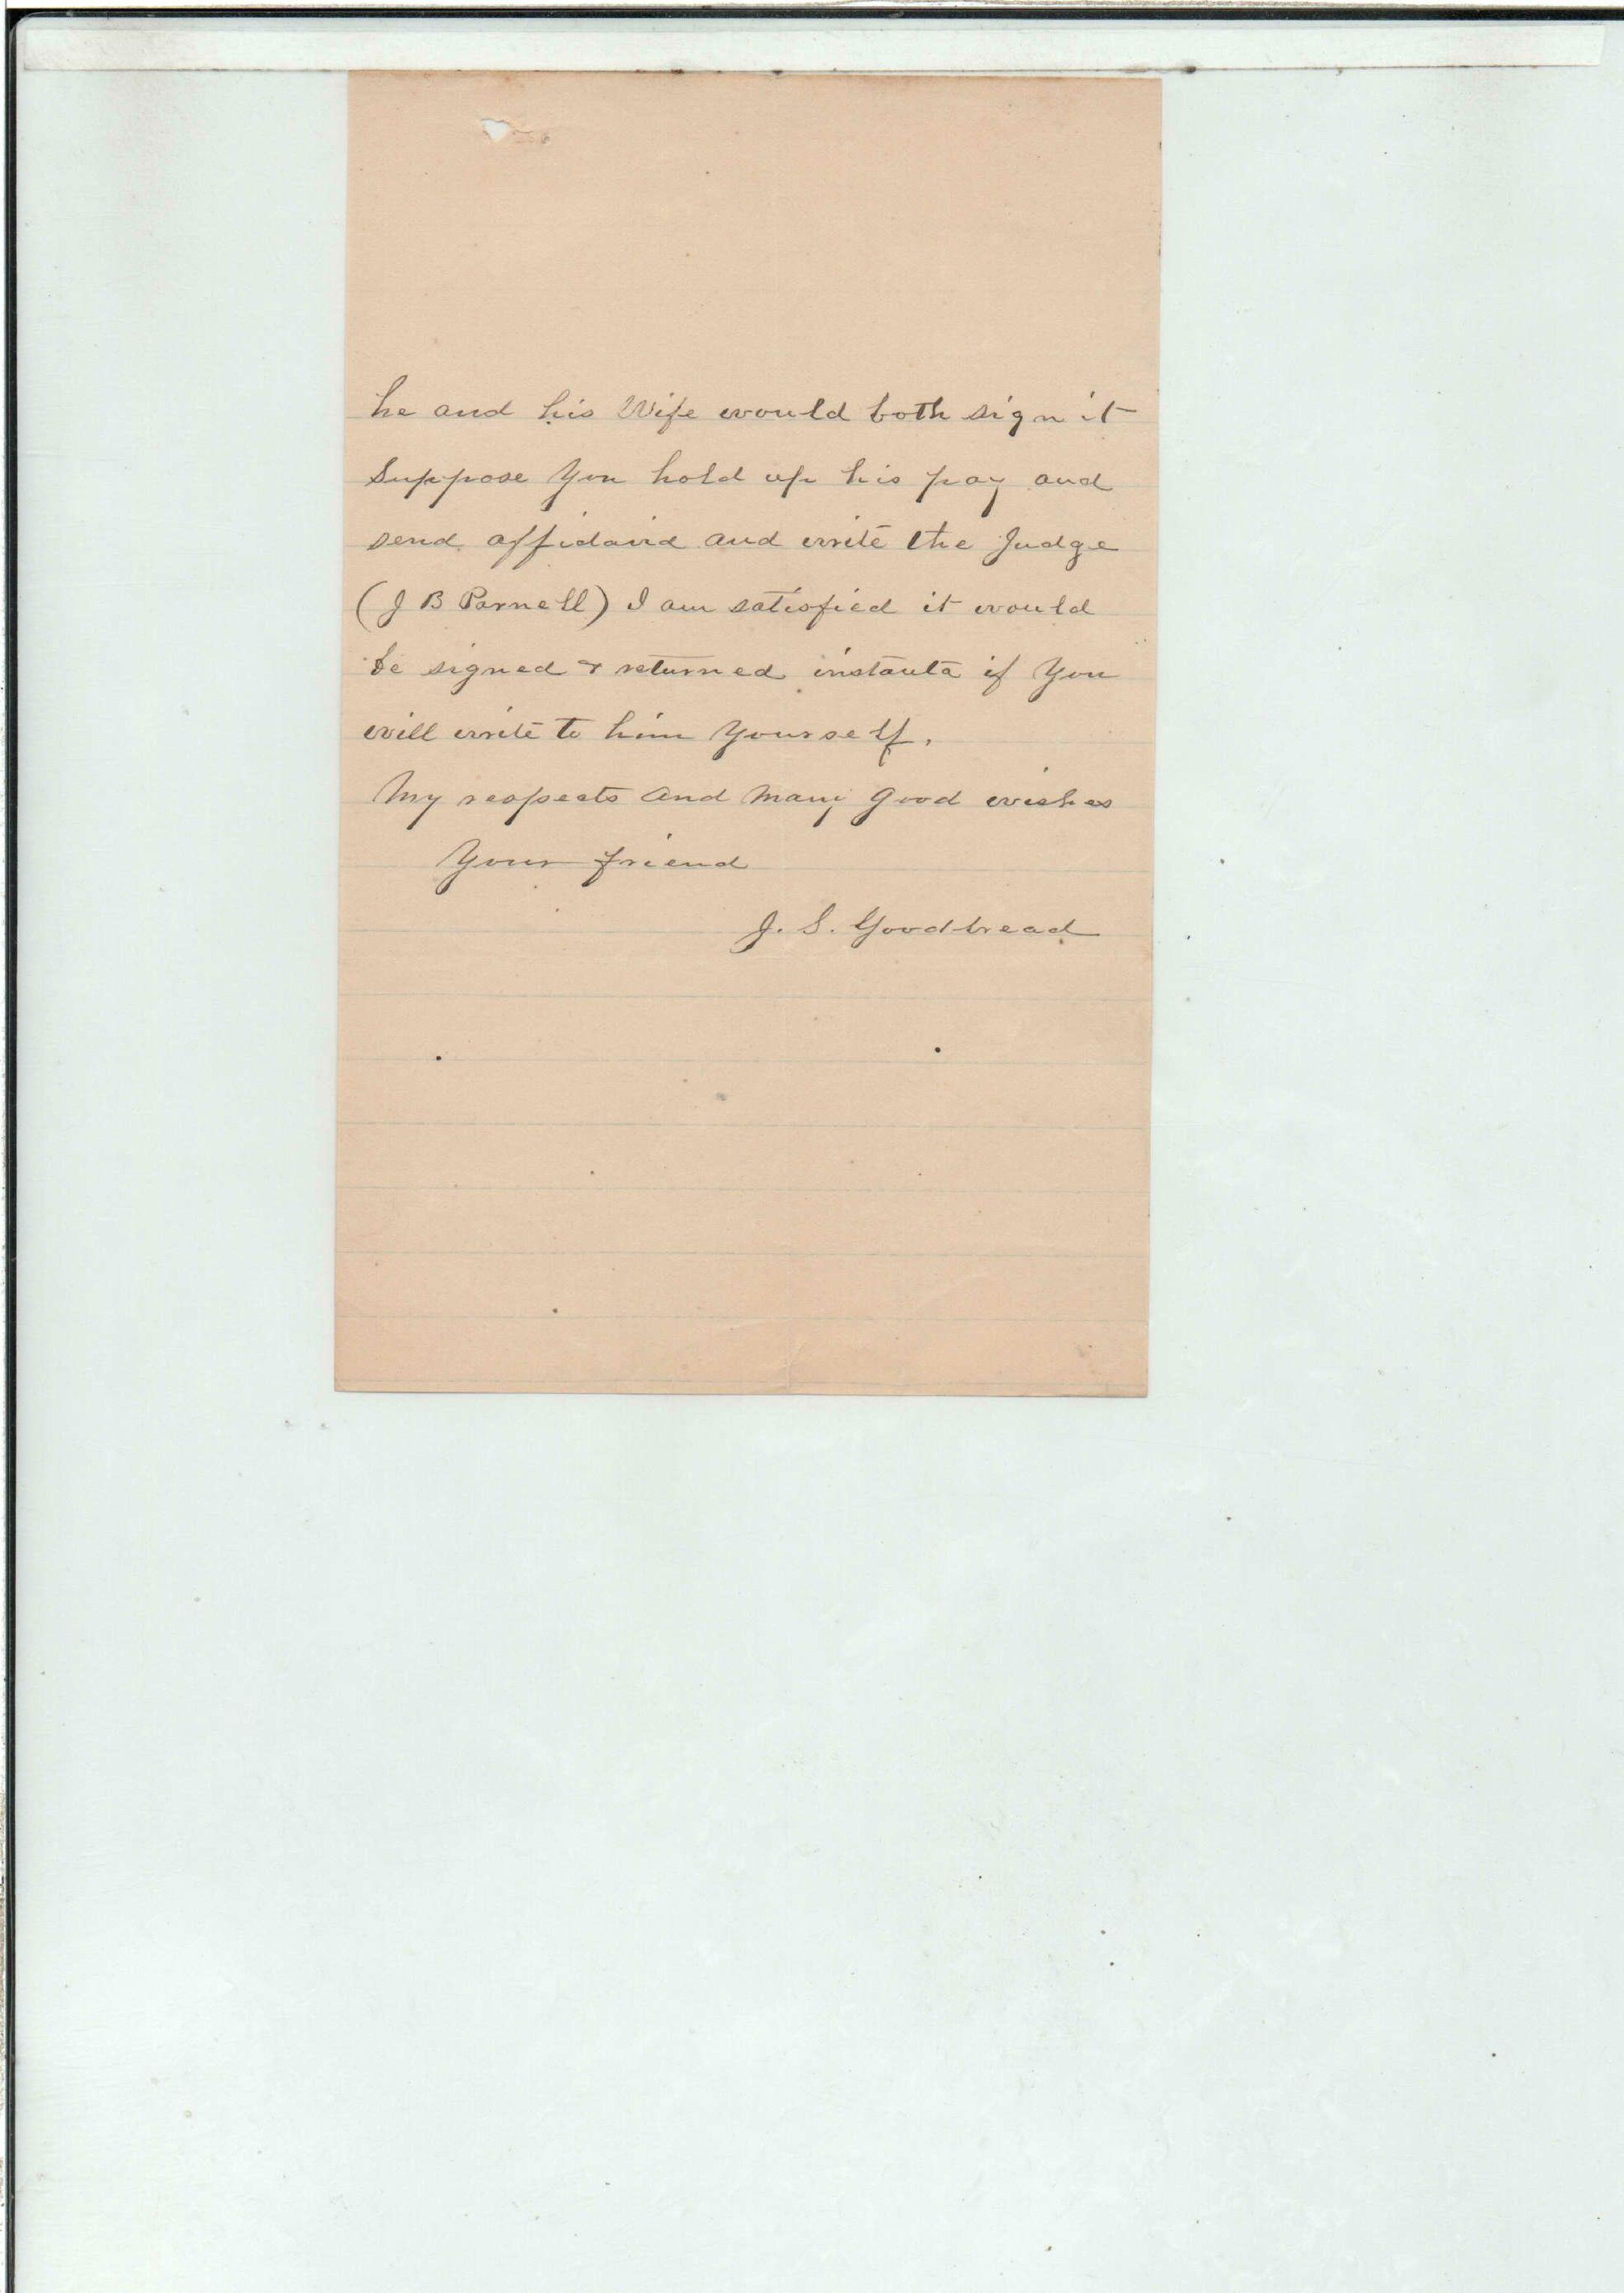 he and his Wife would both sign it
Suppose You hold up his pay and
send affidavid and write the Judge
(J B Parnell) I am satisfied it would
be signed & returned instanta if You
will write to him Yourself.
My respects and Many Good wishes
Your friend
J. S. Goodbread